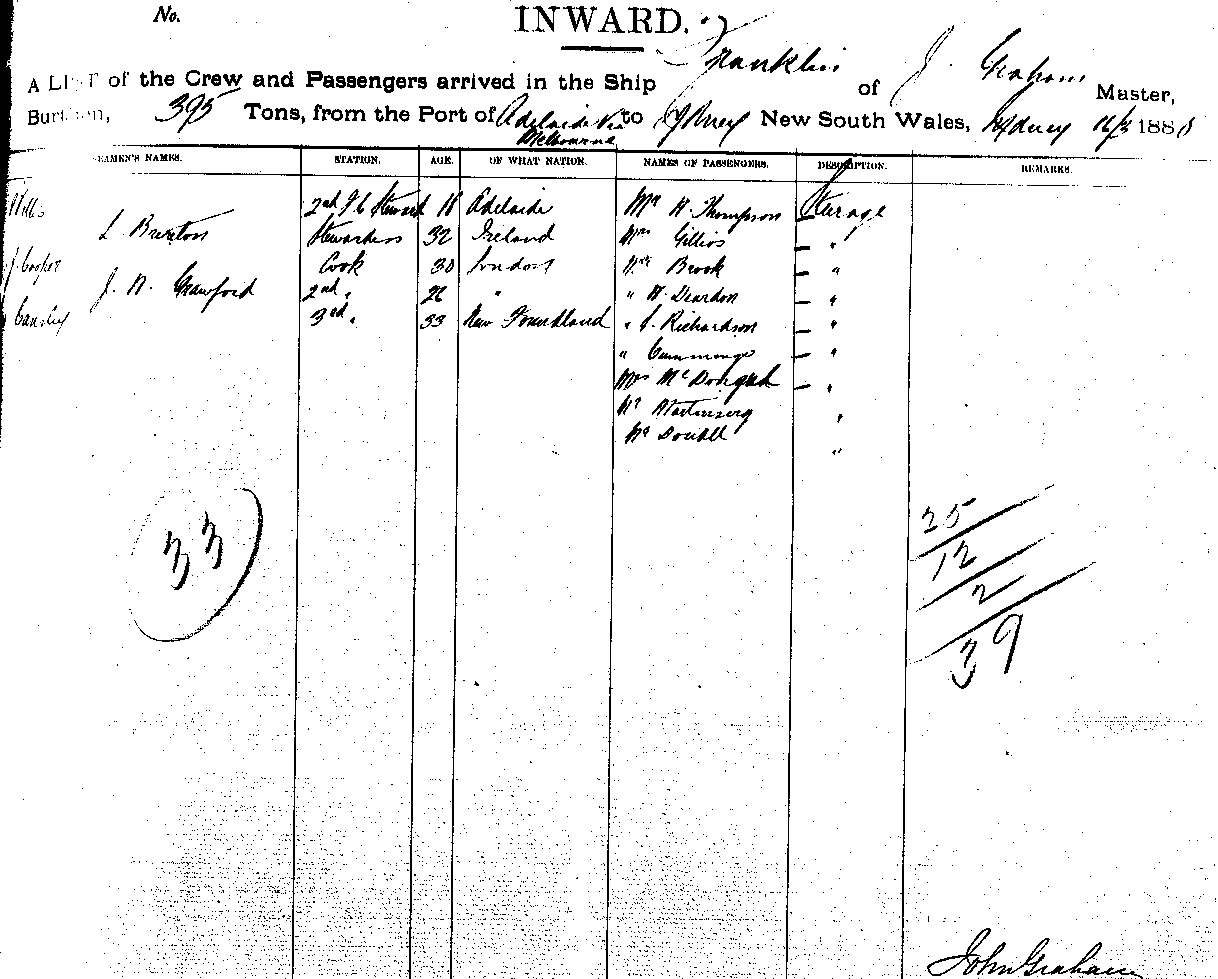 No.
INWARD.
A LIST of the Crew and Passengers arrived in the Ship Franklin of J. Graham Master,
Burthen, 395 Tons, from the Port of Adelaide Via Melbourne to Sydney New South Wales, Sydney 16/3 188
SEAMEN'S NAMES. STATION. AGE. OF WHAT NATION. NAMES OF PASSENGERS. DESCRIPTION. REMARKS.
Willis 2nd Steward 18 Adelaide Mr H. Thompson Sterage
L. Burton Stewardess 32 Ireland Mrs Gillies "
J. Cooper Cook 30 London Mr Brook "
J. N. Crawford 2nd " 26 " " H. Deardon "
3rd " 33 New Foundland " C. Richardson "
" Cummings "
Mrs Mc "
Mr "
Mr Doubell "
33
25
12
2
39
John Graham